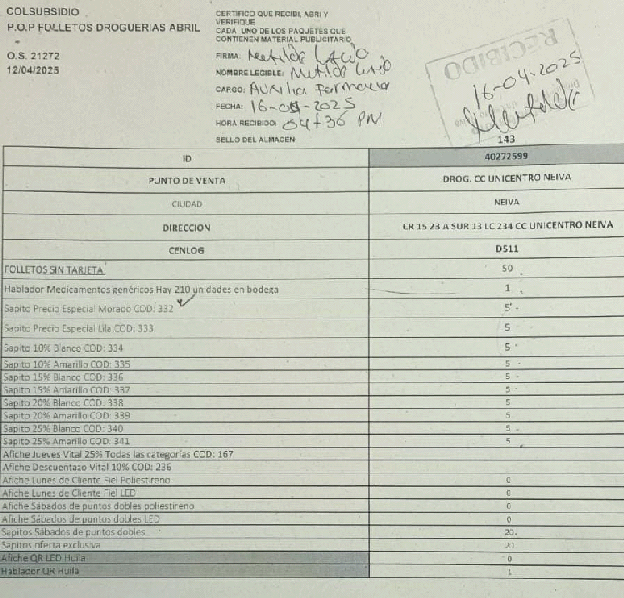 COLSUBSIDIO
P.O.P FOLLETOS DROGUERIAS ABRIL
O.S. 21272
12/04/2025
CERTIFICO QUE RECIBI, ABRI Y
VERIFIQUE
CADA UNO DE LOS PAQUETES QUE
CONTIENEN MATERIAL PUBLICITARIO
FIRMA:
NOMBRE LEGIBLE:
CARGO: Auxiliar Farmacia
FECHA: 16-04-2025
HORA RECIBIDO: 04+36 PM
SELLO DEL ALMACEN
RECIBIDO
16-04-2025
143
ID 40272599
PUNTO DE VENTA DROG. CC UNICENTRO NEIVA
CIUDAD NEIVA
DIRECCION CR 15 23 A SUR 13 LC 234 CC UNICENTRO NEIVA
CENLOG D511
FOLLETOS SIN TARJETA 50
Hablador Medicamentos genéricos Hay 210 unidades en bodega 1
Sapito Precio Especial Morado COD: 332 5
Sapito Precio Especial Lila COD: 333 5
Sapito 10% Blanco COD: 334 5
Sapito 10% Amarillo COD: 335 5
Sapito 15% Blanco COD: 336 5
Sapito 15% Amarillo COD: 337 5
Sapito 20% Blanco COD: 338 5
Sapito 20% Amarillo COD: 339 5
Sapito 25% Blanco COD: 340 5
Sapito 25% Amarillo COD: 341 5
Afiche Jueves Vital 25% Todas las categorías COD: 167
Afiche Descuentazo Vital 10% COD: 236
Afiche Lunes de Cliente Fiel Poliestireno 0
Afiche Lunes de Cliente Fiel LED 0
Afiche Sábados de puntos dobles poliestireno 0
Afiche Sábados de puntos dobles LED 0
Sapitos Sábados de puntos dobles 20
Sapitos oferta exclusiva 20
Afiche QR LED Huila 0
Hablador QR Huila 1